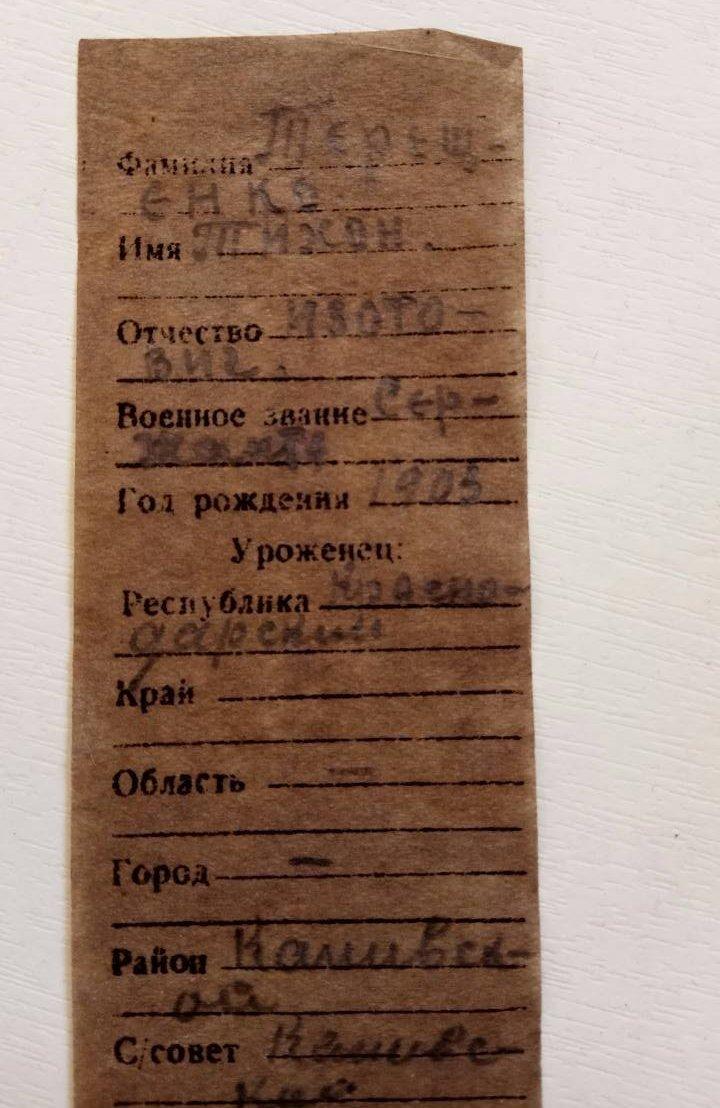 Фамилия Терещ-
енко.
Имя Тихон.
Отчество Изото-
вич.
Военное звание Сер-
жант
Год рождения 1905
Уроженец:
Республика Красно-
дарский
Край
Область —
Город —
Район Каливск-
ой
С/совет Каниве-